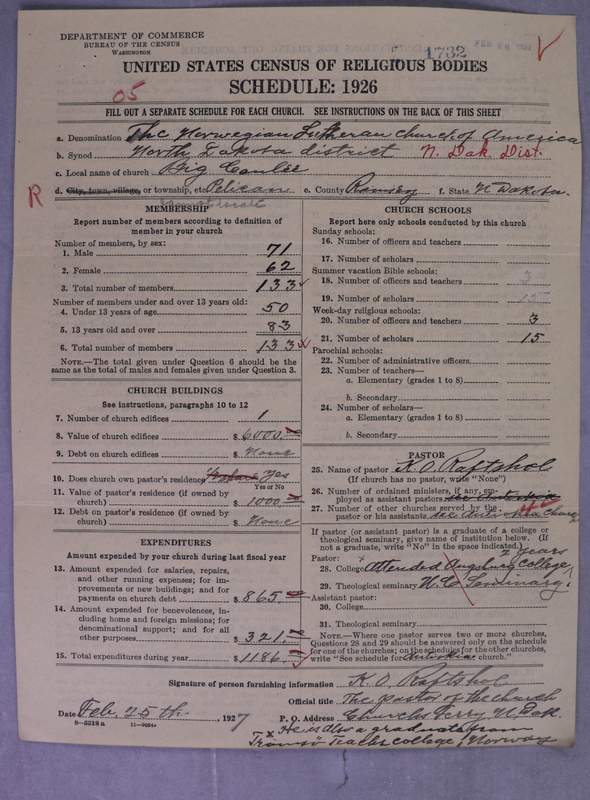 DEPARTMENT OF COMMERCE
BUREAU OF THE CENSUS
WASHINGTON
1732
FEB 28 1927
UNITED STATES CENSUS OF RELIGIOUS BODIES
SCHEDULE: 1926
05
FILL OUT A SEPARATE SCHEDULE FOR EACH CHURCH. SEE INSTRUCTIONS ON THE BACK OF THIS SHEET
a. Denomination The Norwegian Lutheran church of America
b. Synod North Dakota district N. Dak. Dist.
c. Local name of church Big Coulee
R
d. City, town, village, or township, etc Pelican e. County Ramsey f. State N Dakota.
MEMBERSHIP
Report number of members according to definition of member in your church
Number of members, by sex:
1. Male 71
2. Female 62
3. Total number of members 133
Number of members under and over 13 years old:
4. Under 13 years of age 50
5. 13 years old and over 83
6. Total number of members 133
NOTE.—The total given under Question 6 should be
same as the total of males and females given under Question 3.
CHURCH BUILDINGS
See instructions, paragraphs 10 to 12
7. Number of church edifices 1
8. Value of church edifices $ 6000.
9. Debt on church edifices $ None
10. Does church own pastor's residence Yes
Yes or No
11. Value of pastor's residence (if owned by
church) $ 1000
12. Debt on pastor's residence (if owned by
church) $ None
EXPENDITURES
Amount expended by your church during last fiscal year
13. Amount expended for salaries, repairs,
and other running expenses; for improvements
or new buildings; and for
payments on church debt $ 865.
14. Amount expended for benevolences,
including home and foreign missions; for
denominational support; and for all
other purposes $ 321.
15. Total expenditures during year $ 1186.
CHURCH SCHOOLS
Report here only schools conducted by this church
Sunday schools:
16. Number of officers and teachers
17. Number of scholars
Summer vacation Bible schools:
18. Number of officers and teachers 3
19. Number of scholars 15
Week-day religious schools:
20. Number of officers and teachers 3
21. Number of scholars 15
Parochial schools:
22. Number of administrative officers
23. Number of teachers—
a. Elementary (grades 1 to 8)
b. Secondary
24. Number of scholars—
a. Elementary (grades 1 to 8)
b. Secondary
PASTOR
25. Name of pastor K. O. Raftshol
(If church has no pastor, write "None")
26. Number of ordained ministers, if any, employed
as assistant pastors
27. Number of other churches served by the
pastor or his assistants
If pastor (or assistant pastor) is a graduate of a college or
theological seminary, give name of institution below. (If
not a graduate, write "No" in the space indicated.)
Pastor: 2 years
28. College Attended Augsburg College
29. Theological seminary U.C. Seminary.
Assistant pastor:
30. College
31. Theological seminary
NOTE.—Where one pastor serves two or more churches,
Questions 28 and 29 should be answered only on the schedule
for one of the churches; on the schedules for the other churches,
write "See schedule for church."
Signature of person furnishing information K. O. Raftshol
Official title The pastor of the church
Date Feb. 25th, 1927 P. O. Address Churchs Ferry, N. Dak.
8—5518a 11—9084
x He is also a graduate from
Tromsö Teachs college, Norway